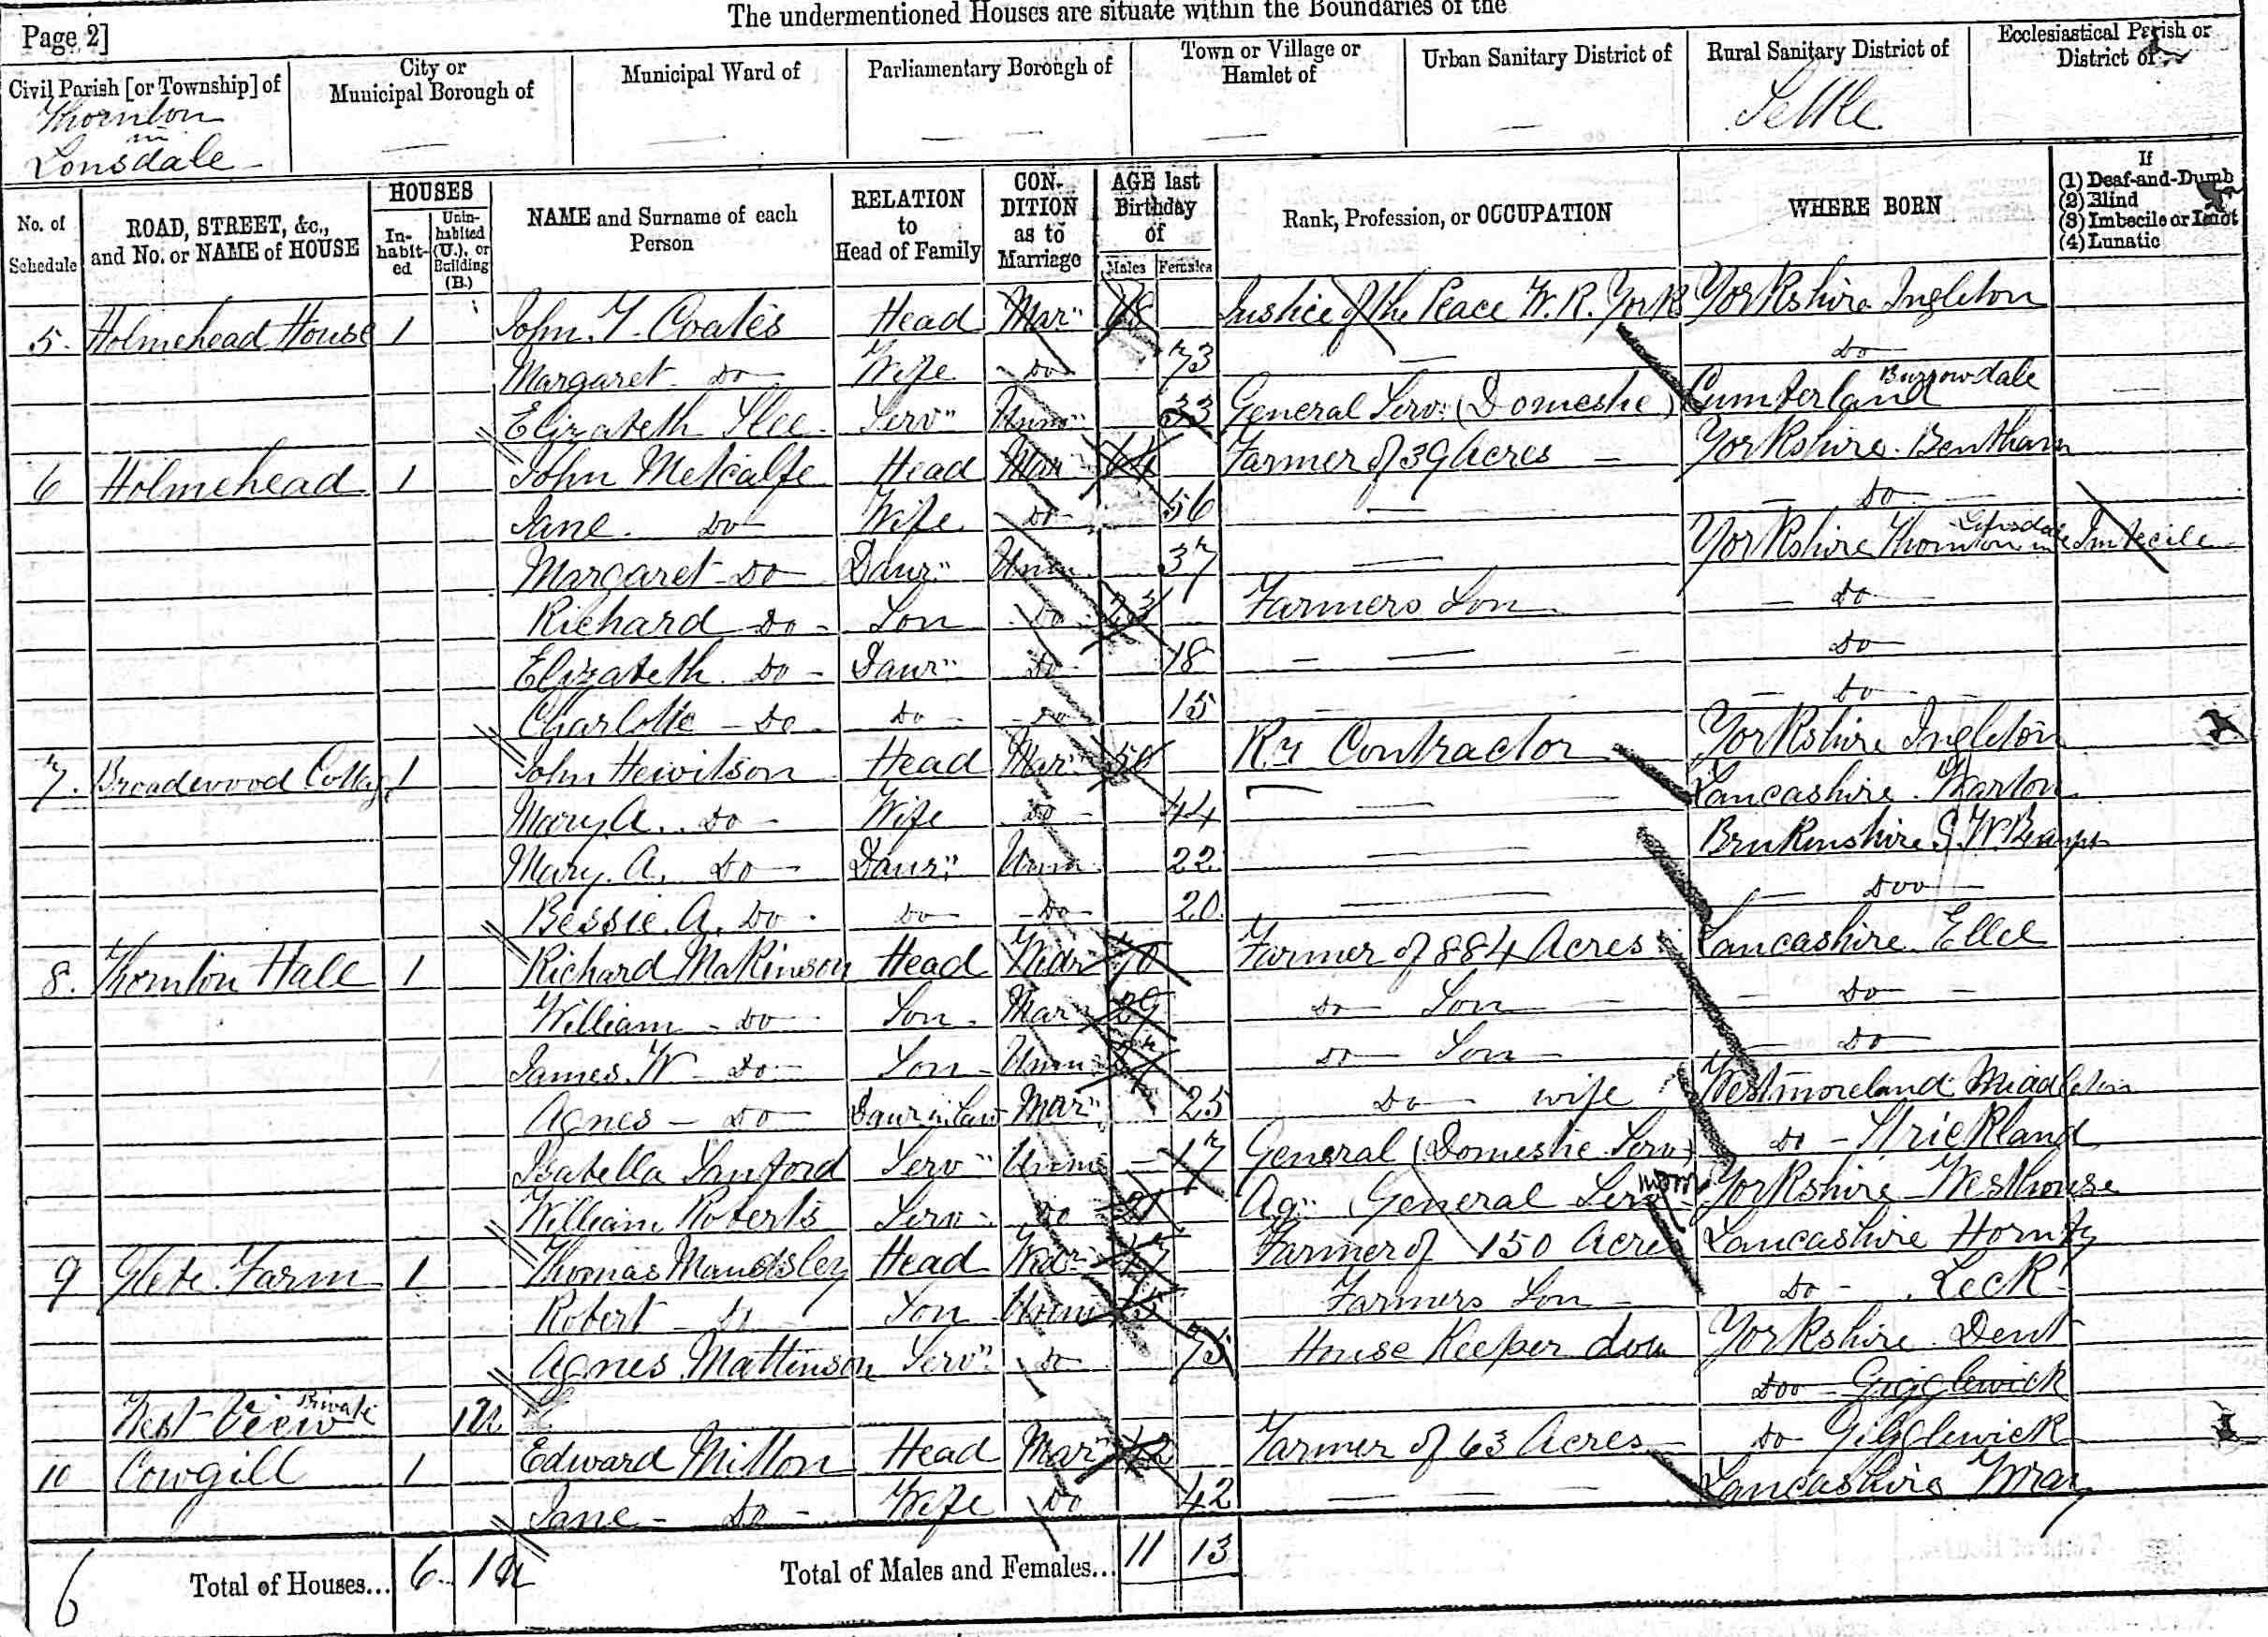 The undermentioned Houses are situate within the Boundaries of the
Page 2]
Civil Parish [or Township] of
City or Municipal Borough of
Municipal Ward of
Parliamentary Borough of
Town or Village or Hamlet of
Urban Sanitary District of
Rural Sanitary District of
Ecclesiastical Parish or District of
Thornton in Lonsdale
Settle
No. of Schedule
ROAD, STREET, &c., and No. or NAME of HOUSE
HOUSES
In-habit-ed
Unin-habited (U.), or Building (B.)
NAME and Surname of each Person
RELATION to Head of Family
CON-DITION as to Marriage
AGE last Birthday of
Males Females
Rank, Profession, or OCCUPATION
WHERE BORN
If
(1) Deaf-and-Dumb
(2) Blind
(3) Imbecile or Idiot
(4) Lunatic
5. Holmehead House 1 John. T. Coates Head Mar" 68 Justice of the Peace W. R. York Yorkshire Ingleton
Margaret do Wife do 73 — do
Elizabeth Slee Serv" Unm" 33 General Serv: (Domestic) Cumberland Burrowdale
6 Holmehead 1 John Metcalfe Head Mar 64 Farmer of 39 Acres — Yorkshire. Bentham
Jane. do Wife do 56 — do
Margaret do Daur" Unm 37 — Yorkshire Thornton in Lonsdale Imbecile
Richard do Son do 23 Farmers Son do
Elizabeth. do Daur" do 18 — do
Charlotte do do do 15 — do
7. Broadwood Cottage 1 John Hewitson Head Mar" 50 Ry Contractor Yorkshire Ingleton
Mary. A. do Wife do 44 — Lancashire. Warton
Mary. A. do Daur" Unm 22 — S. W.
Bessie. A. do do do 20 — doo
8. Thornton Hall 1 Richard Makinson Head Widr 70 Farmer of 884 Acres Lancashire Ellel
William do Son Mar 29 do Son do
James. W do Son Unm do Son do
Agnes do Daur in Law Mar" 25 do wife Westmoreland Middleton
Isabella Sanford Serv" Unm 17 General (Domestic Serv) do Strickland
William Roberts Serv do 21 Ag" General Serv Yorkshire Westhouse
9 Glebe Farm 1 Thomas Maudsley Head Widr 47 Farmer of 150 Acre Lancashire Hornby
Robert do Son Unm 15 Farmers Son do Leck
Agnes Mattinson Serv" do 75 House Keeper dom Yorkshire Dent
West View Private 1U doo Gigglewick
10 Cowgill 1 Edward Mitton Head Mar" 42 Farmer of 63 Acres do Gigglewick
Jane do Wife do 42 — Lancashire Wray
6 Total of Houses... 6 1U Total of Males and Females... 11 13